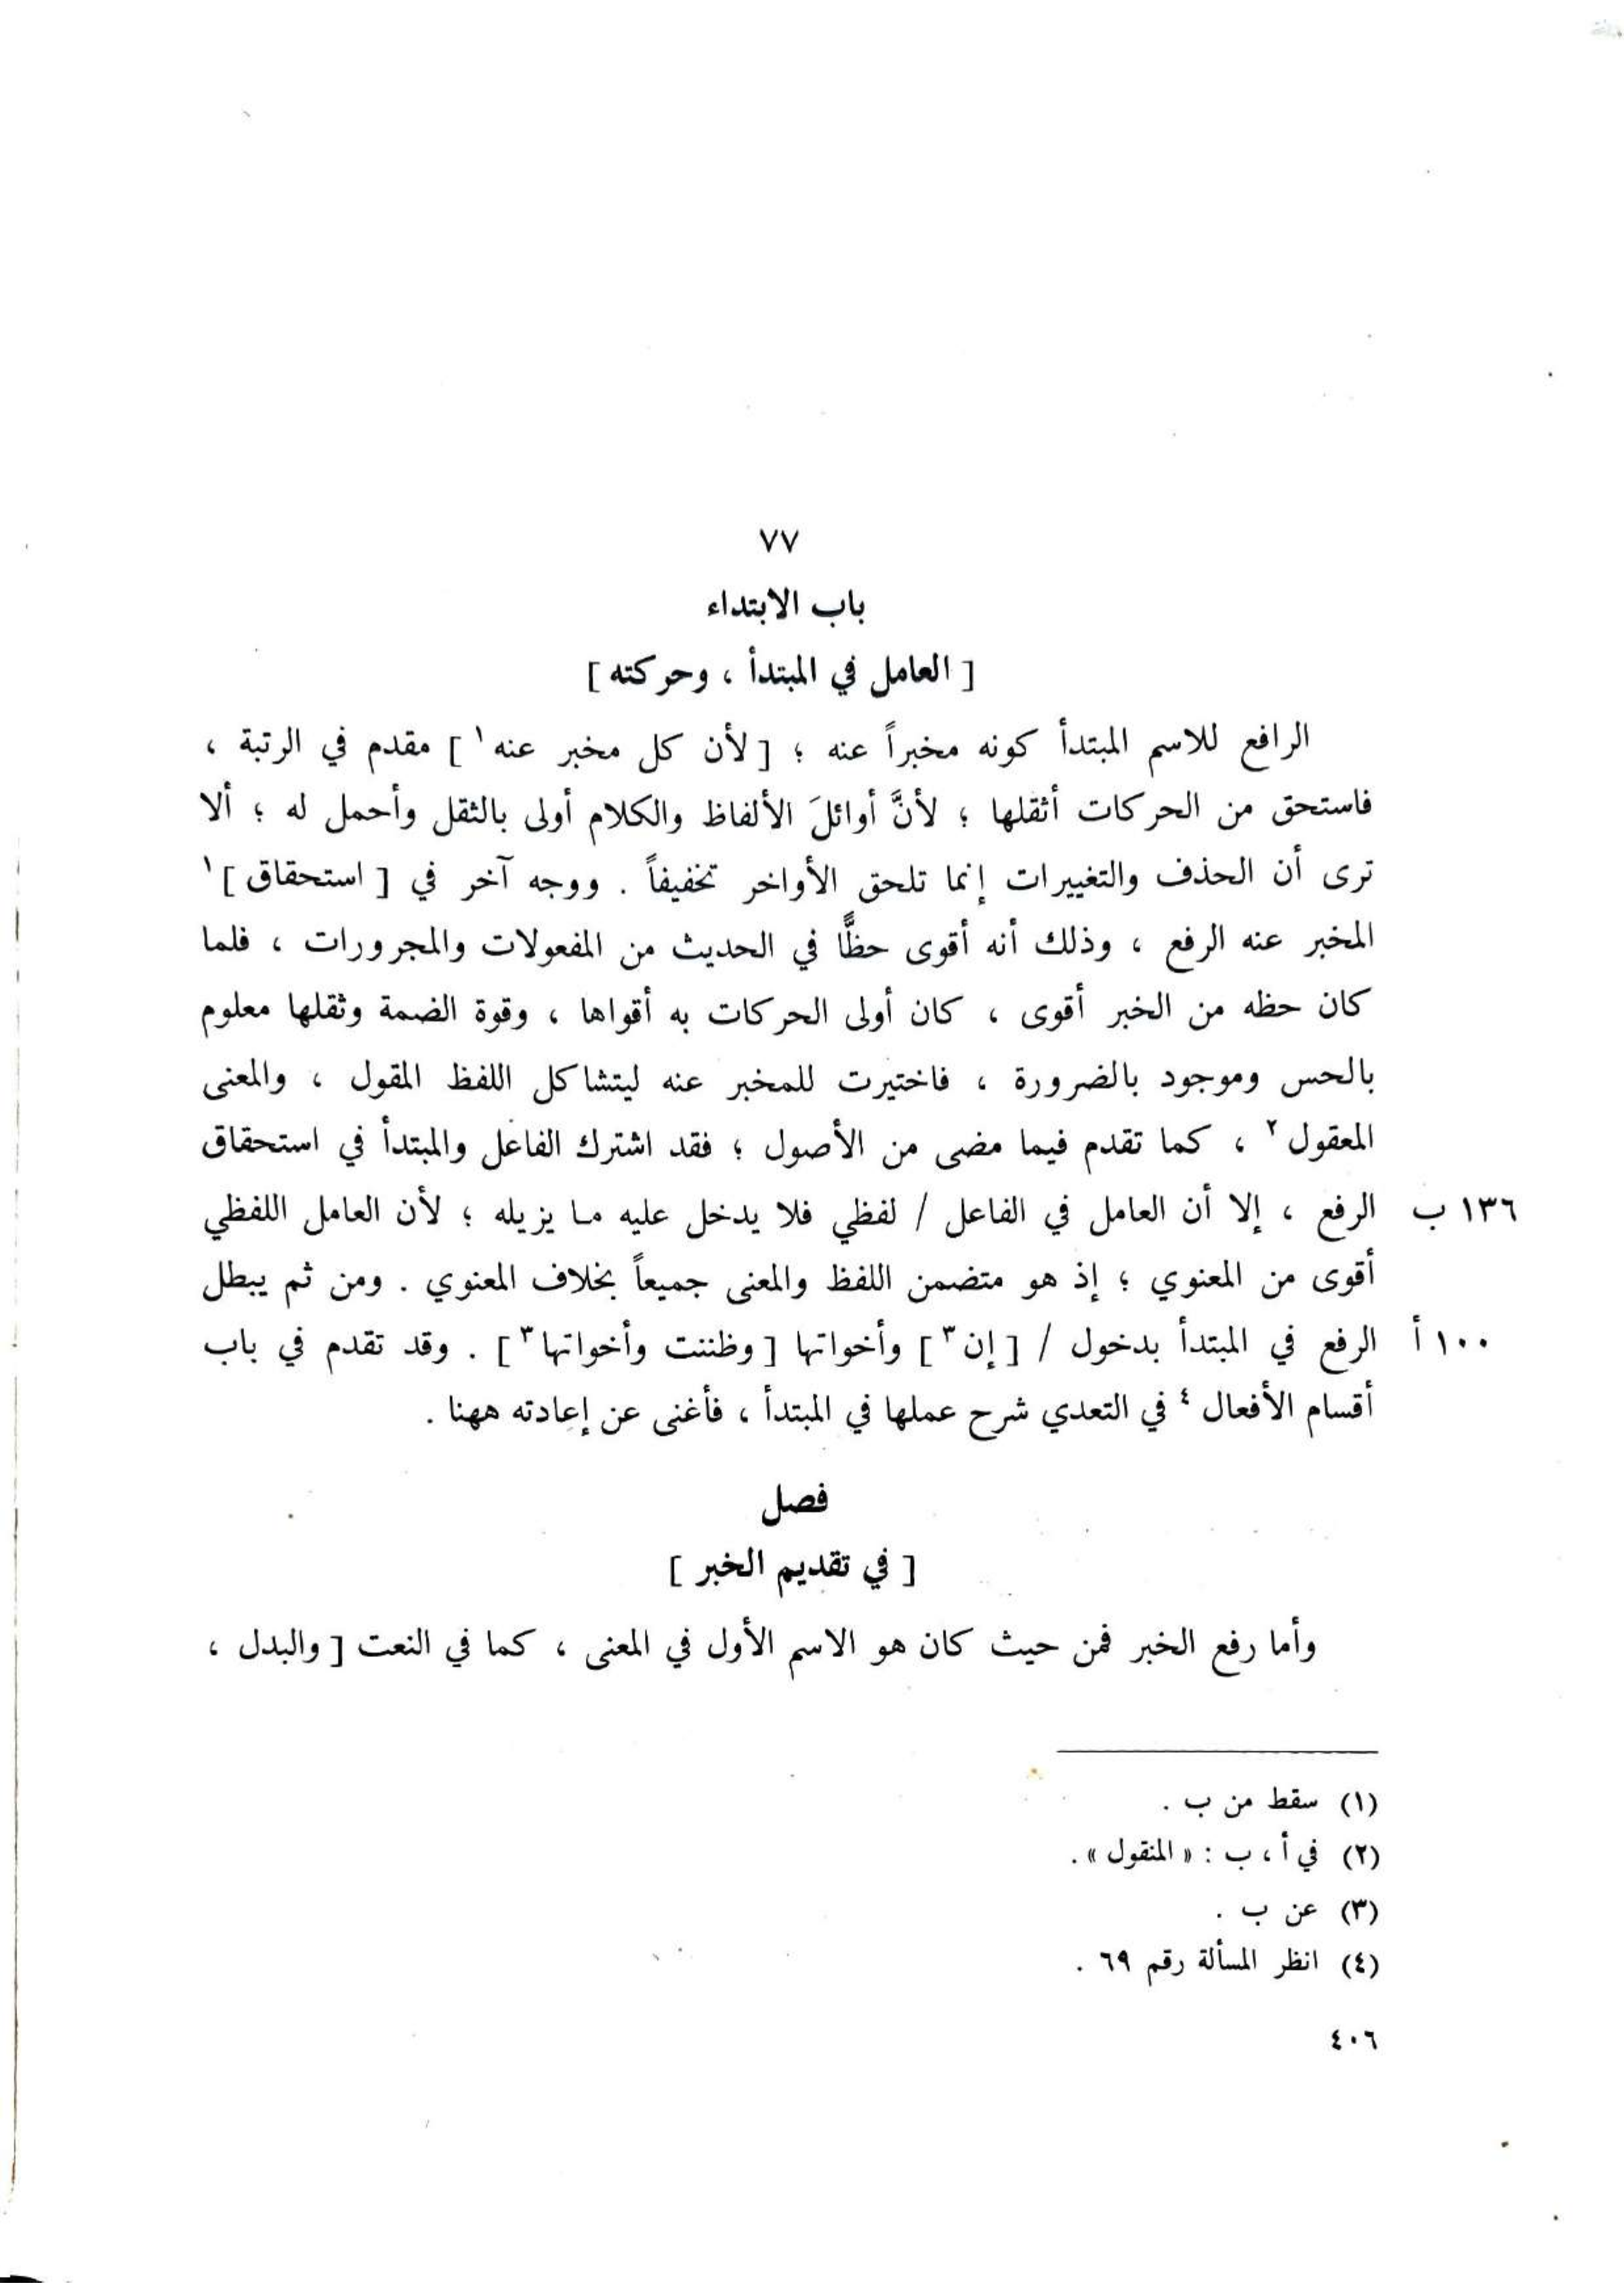 ٧٧
باب الابتداء
[ العامل في المبتدأ ، وحركته ]
الرافع للاسم المبتدأ كونه مخبراً عنه ؛ [ لأن كل مخبر عنه ١ ] مقدم في الرتبة ،
فاستحق من الحركات أثقلها ؛ لأنَّ أوائلَ الألفاظ والكلام أولى بالثقل وأحمل له ؛ ألا
ترى أن الحذف والتغييرات إنما تلحق الأواخر تخفيفاً . ووجه آخر في [ استحقاق ] ١
المخبر عنه الرفع ، وذلك أنه أقوى حظًّا في الحديث من المفعولات والمجرورات ، فلما
كان حظه من الخبر أقوى ، كان أولى الحركات به أقواها ، وقوة الضمة وثقلها معلوم
بالحس وموجود بالضرورة ، فاختيرت للمخبر عنه ليتشاكل اللفظ المقول ، والمعنى
المعقول ٢ ، كما تقدم فيما مضى من الأصول ؛ فقد اشترك الفاعل والمبتدأ في استحقاق
١٣٦ ب الرفع ، إلا أن العامل في الفاعل / لفظي فلا يدخل عليه ما يزيله ؛ لأن العامل اللفظي
أقوى من المعنوي ؛ إذ هو متضمن اللفظ والمعنى جميعاً بخلاف المعنوي . ومن ثم يبطل
١٠٠ أ الرفع في المبتدأ بدخول / [ إن ٣ ] وأخواتها [ وظننت وأخواتها ٣ ] . وقد تقدم في باب
أقسام الأفعال ٤ في التعدي شرح عملها في المبتدأ ، فأغنى عن إعادته ههنا .
فصل
[ في تقديم الخبر ]
وأما رفع الخبر فمن حيث كان هو الاسم الأول في المعنى ، كما في النعت [ والبدل ،
(١) سقط من ب .
(٢) في أ ، ب : « المنقول » .
(٣) عن ب .
(٤) انظر المسألة رقم ٦٩ .
٤٠٦